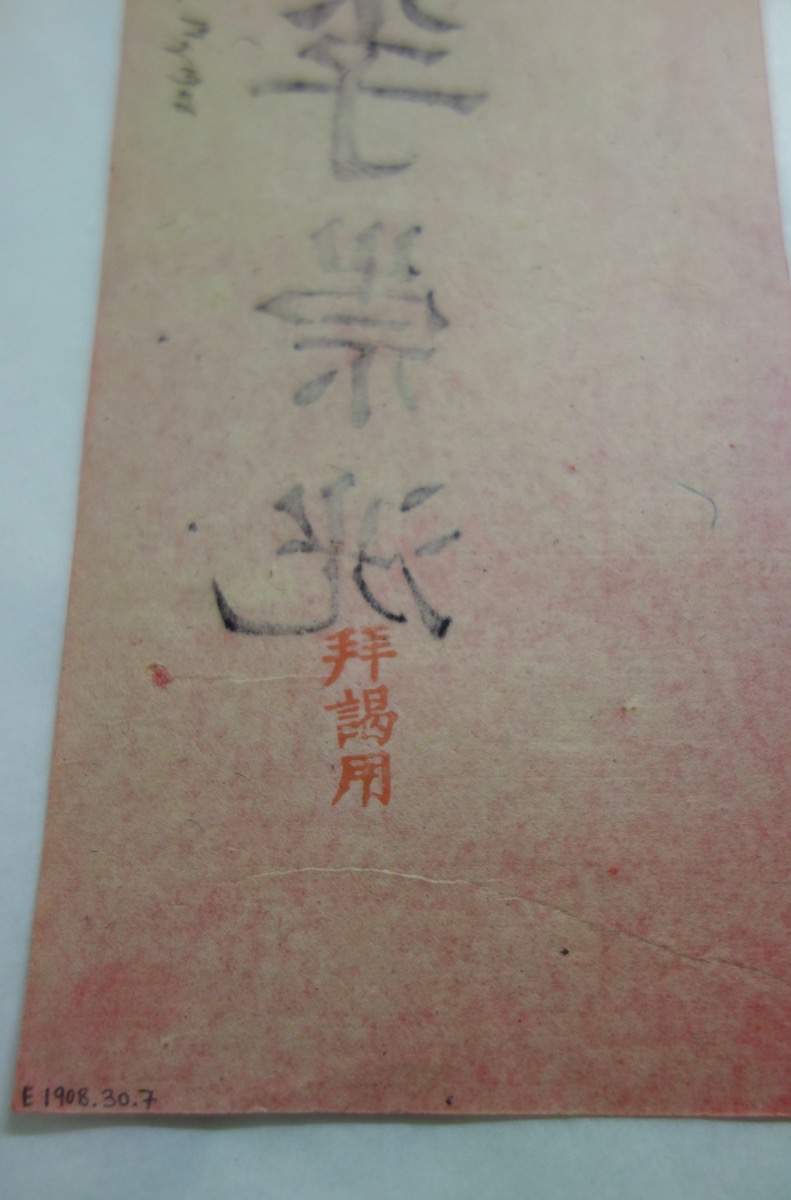 李
崇
拜謁用
E 1908.30.7